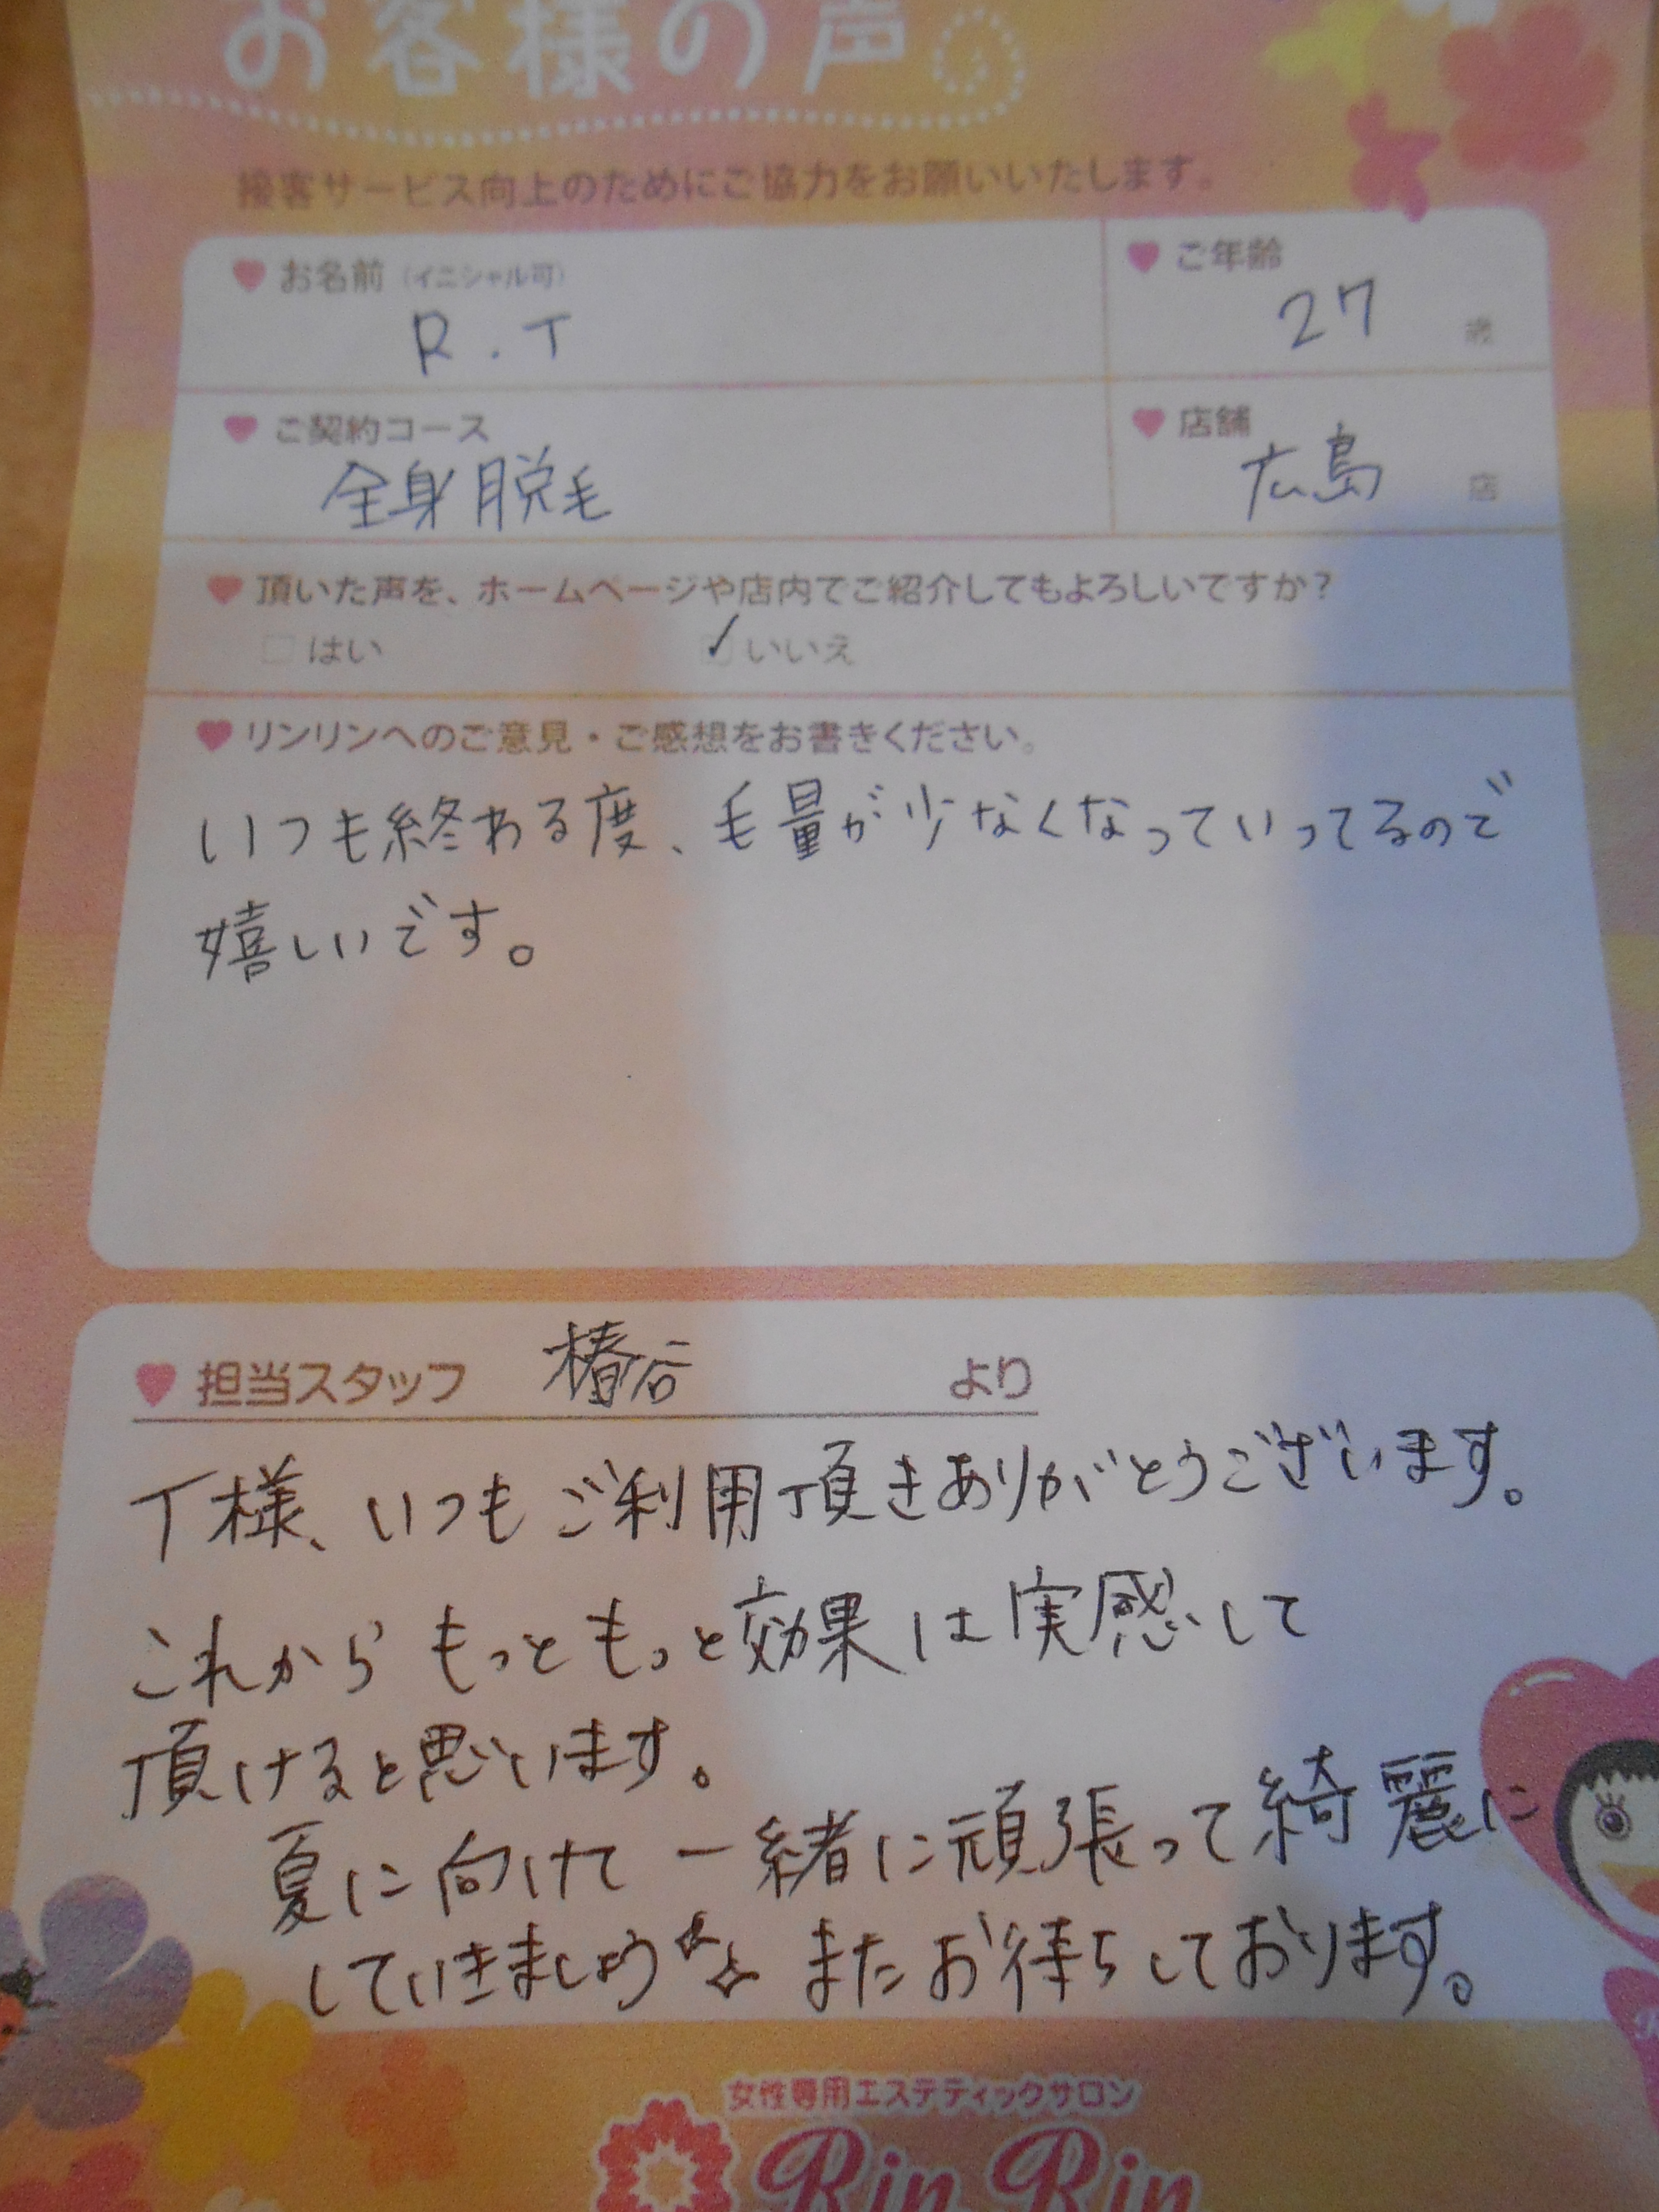 お客様の声
接客サービス向上のためにご協力をお願いいたします。
お名前(イニシャル可)
R.T
ご年齢
27 歳
ご契約コース
全身脱毛
店舗
広島 店
頂いた声を、ホームページや店内でご紹介してもよろしいですか?
はい ✓いいえ
リンリンへのご意見・ご感想をお書きください。
いつも終わる度、毛量が少なくなっていってるので
嬉しいです。
担当スタッフ 椿谷 より
T様、いつもご利用頂きありがとうございます。
これからもっともっと効果は実感して
頂けると思います。
夏に向けて一緒に頑張って綺麗に
していきましょう またお待ちしております。
女性専用エステティックサロン
Rin Rin